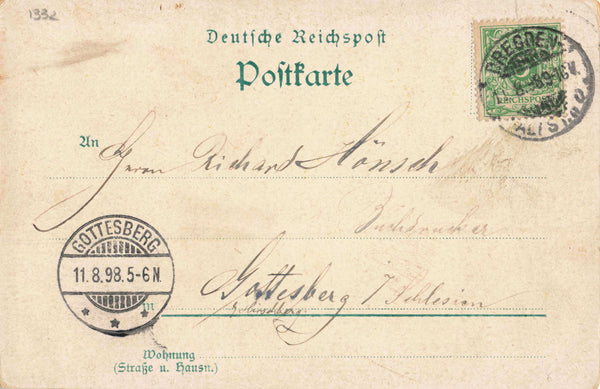 1332
Deutsche Reichspost
Postkarte
REICHSPOST
An
Herrn Richard Hönsch
Buchdrucker
GOTTESBERG
11.8.98.5-6N.
in Gottesberg / Schlesien
Wohnung
(Straße u. Hausn.)